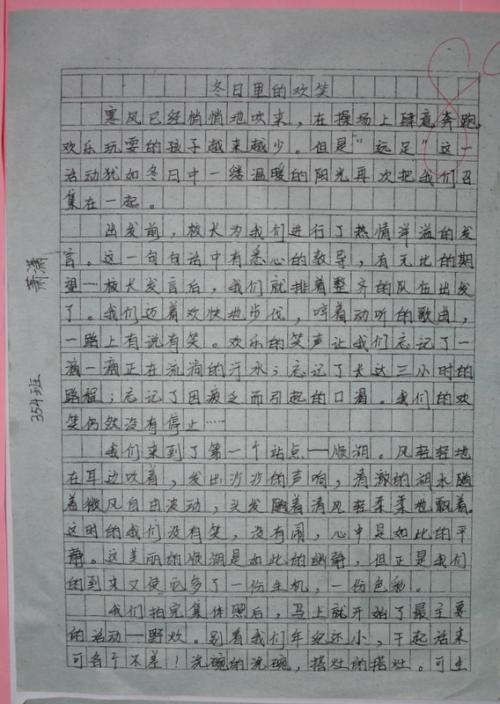 冬日里的欢笑
寒风已经悄悄地吹来，在操场上肆意奔跑，
欢乐玩耍的孩子越来越少。但是“远足”这一
活动犹如冬日中一缕温暖的阳光再次把我们召
集在一起。
出发前，校长为我们进行了热情洋溢的发
言。这一句句话中有悉心的教导，有无比的期
望…校长发言后，我们就排着整齐的队伍出发
了。我们迈着欢快地步伐，哼着动听的歌曲，
一路上有说有笑。欢乐的笑声让我们忘记了一
滴一滴正在流淌的汗水；忘记了长达三小时的
路程；忘记了因疲乏而引起的口渴。我们的欢
笑仍然没有停止……
我们来到了第一个站点—顺湖。风轻轻地
在耳边吹着，发出沙沙的声响，清澈的湖水随
着微风自由波动，头发随着清风轻柔柔地飘着。
这时的我们没有笑，没有闹，心中是如此的平
静。这美丽的顺湖是如此的幽静，但正是我们
的到来又使它多了一份生机，一份色彩。
我们拍完集体照后，马上就开始了最主要
的活动—野炊。别看我们年纪还小，干起活来
可各个不差！洗碗的洗碗，搭灶的搭灶。可生
354班
萧潇